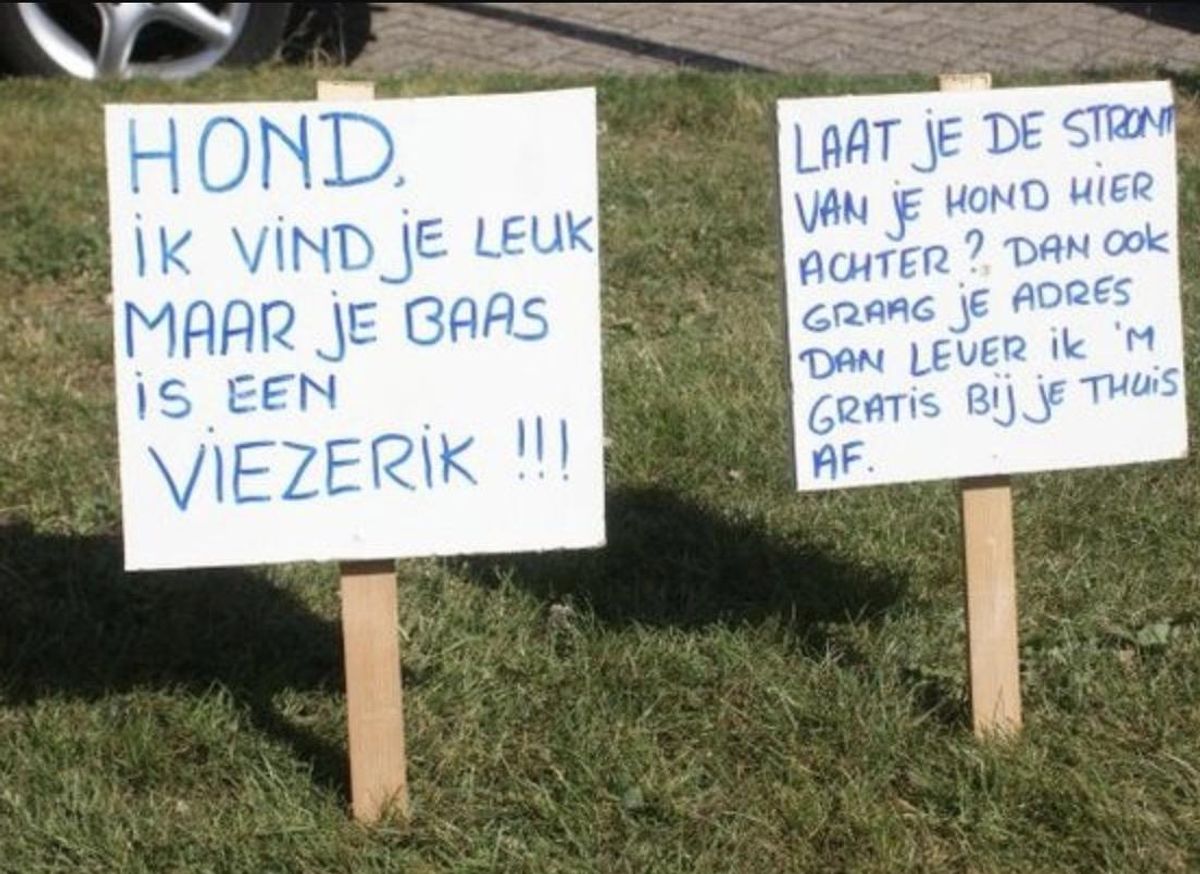 HOND,
iK ViND jE LEUK
MAAR jE BAAS
iS EEN
ViEZERiK !!!
LAAT jE DE STRONT
VAN jE HOND HIER
ACHTER? DAN OOK
GRAAG jE ADRES
DAN LEVER iK 'M
GRATiS BIJ jE THUiS
AF.